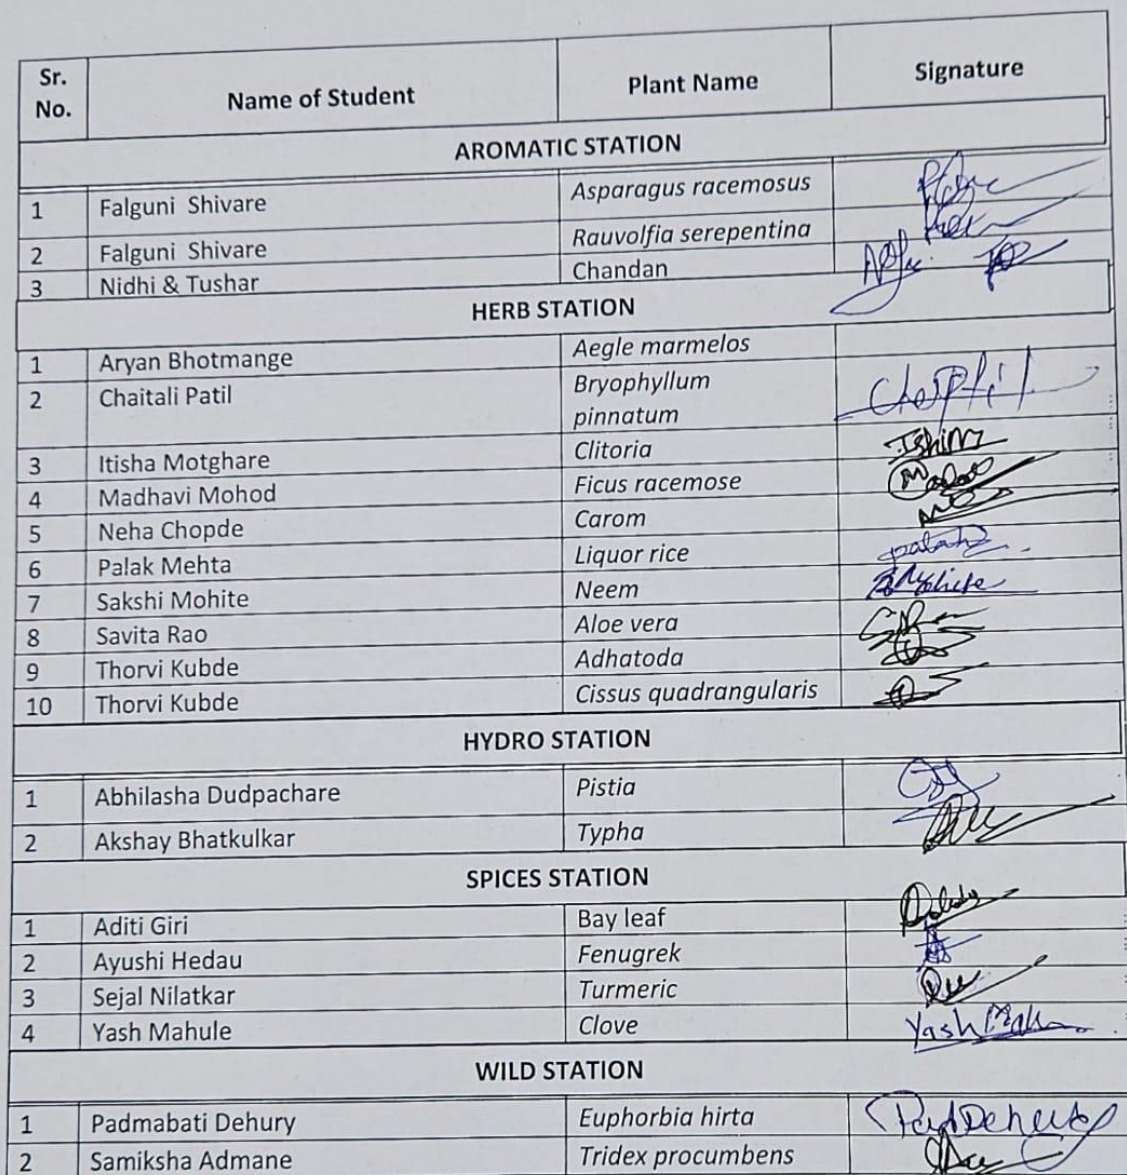 Sr. No. Name of Student Plant Name Signature
AROMATIC STATION
1 Falguni Shivare Asparagus racemosus
2 Falguni Shivare Rauvolfia serepentina
3 Nidhi & Tushar Chandan
HERB STATION
1 Aryan Bhotmange Aegle marmelos
2 Chaitali Patil Bryophyllum
pinnatum
3 Itisha Motghare Clitoria
4 Madhavi Mohod Ficus racemose
5 Neha Chopde Carom
6 Palak Mehta Liquor rice
7 Sakshi Mohite Neem
8 Savita Rao Aloe vera
9 Thorvi Kubde Adhatoda
10 Thorvi Kubde Cissus quadrangularis
HYDRO STATION
1 Abhilasha Dudpachare Pistia
2 Akshay Bhatkulkar Typha
SPICES STATION
1 Aditi Giri Bay leaf
2 Ayushi Hedau Fenugrek
3 Sejal Nilatkar Turmeric
4 Yash Mahule Clove Yash
WILD STATION
1 Padmabati Dehury Euphorbia hirta
2 Samiksha Admane Tridex procumbens